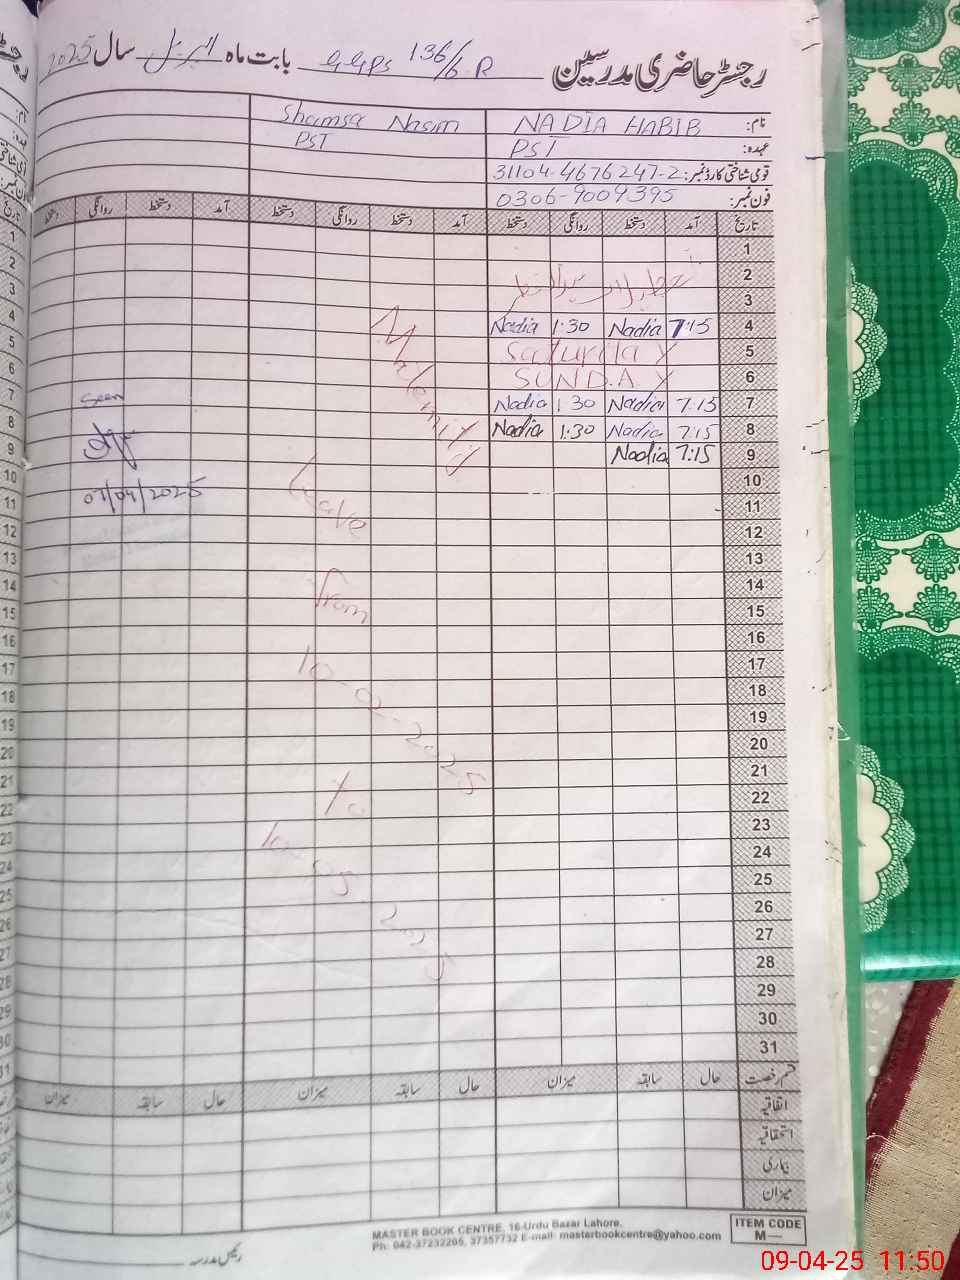 رجسٹر حاضری مدرسین GGPS 136/6.R بابت ماہ اپریل سال 2025
نام: NADIA HABIB Shamsa Nasim
عہدہ: PST PST
قومی شناختی کارڈ نمبر: 31104-4676247-2
فون نمبر: 0306-9009395
تاریخ آمد دستخط روانگی دستخط آمد دستخط روانگی دستخط آمد دستخط روانگی دستخط
1
2
3
4 7:15 Nadia 1:30 Nadia
5 Saturday
6 SUNDAY
7 7:15 Nadia 1:30 Nadia
8 7:15 Nadia 1:30 Nadia
9 7:15 Nadia
10
11
12
13
14
15
16
17
18
19
20
21
22
23
24
25
26
27
28
29
30
31
Maternity
Leave
from
10-02-2025
To
10-05-2025
Seen
07/04/2025
قسم رخصت حال سابقہ میزان حال سابقہ میزان حال سابقہ میزان
اتفاقیہ
استحقاقیہ
بیماری
میزان
رئیس مدرسہ
MASTER BOOK CENTRE, 16-Urdu Bazar Lahore.
Ph: 042-37232205, 37357732 E-mail: masterbookcentre@yahoo.com
ITEM CODE
M—
09-04-25 11:50